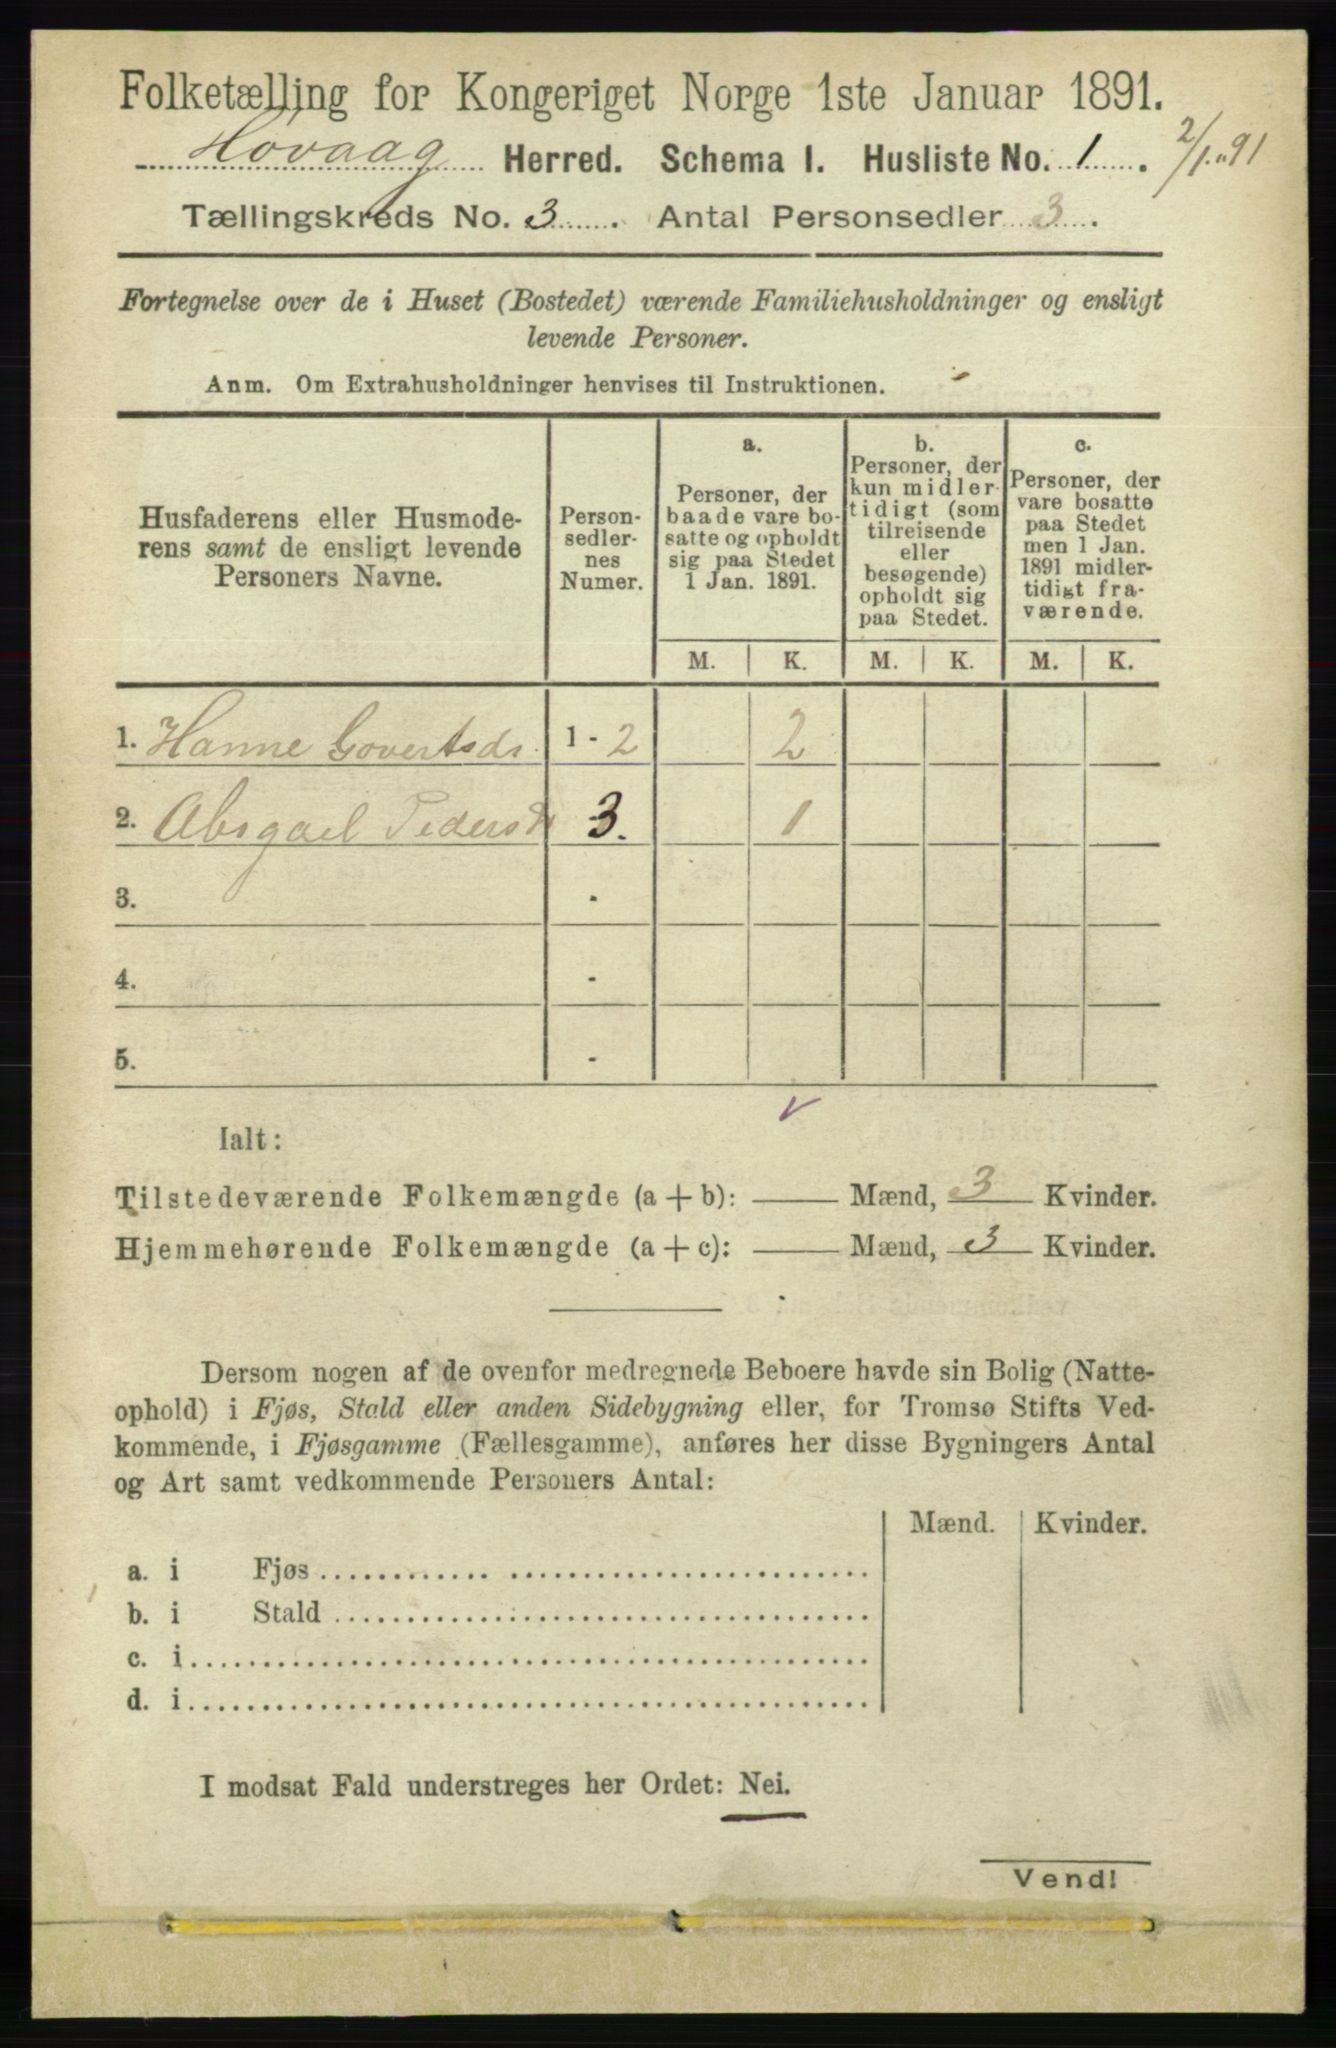 Folketælling for Kongeriget Norge 1ste Januar 1891.
Høvaag Herred. Schema I. Husliste No. 1. 2/1.91
Tællingskreds No. 3. Antal Personsedler 3.
Fortegnelse over de i Huset (Bostedet) værende Familiehusholdninger og ensligt
levende Personer.
Anm. Om Extrahusholdninger henvises til Instruktionen.
Husfaderens eller Husmode-
rens samt de ensligt levende
Personers Navne.
Person-
sedler-
nes
Numer.
a.
Personer, der
baade vare bo-
satte og opholdt
sig paa Stedet
1 Jan. 1891.
b.
Personer, der
kun midler-
tidigt (som
tilreisende
eller
besøgende)
opholdt sig
paa Stedet.
c.
Personer, der
vare bosatte
paa Stedet
men 1 Jan.
1891 midler-
tidigt fra-
værende.
M. K. M. K. M. K.
1. Hanne Govertsdr. 1 - 2 2
2. Absgael Pedersd 3. 1
3. -
4. -
5. -
Ialt:
Tilstedeværende Folkemængde (a + b): — Mænd, 3 Kvinder.
Hjemmehørende Folkemængde (a + c): — Mænd, 3 Kvinder.
Dersom nogen af de ovenfor medregnede Beboere havde sin Bolig (Natte-
ophold) i Fjøs, Stald eller anden Sidebygning eller, for Tromsø Stifts Ved-
kommende, i Fjøsgamme (Fællesgamme), anføres her disse Bygningers Antal
og Art samt vedkommende Personers Antal:
Mænd. Kvinder.
a. i Fjøs
b. i Stald
c. i
d. i
I modsat Fald understreges her Ordet: Nei.
Vend!